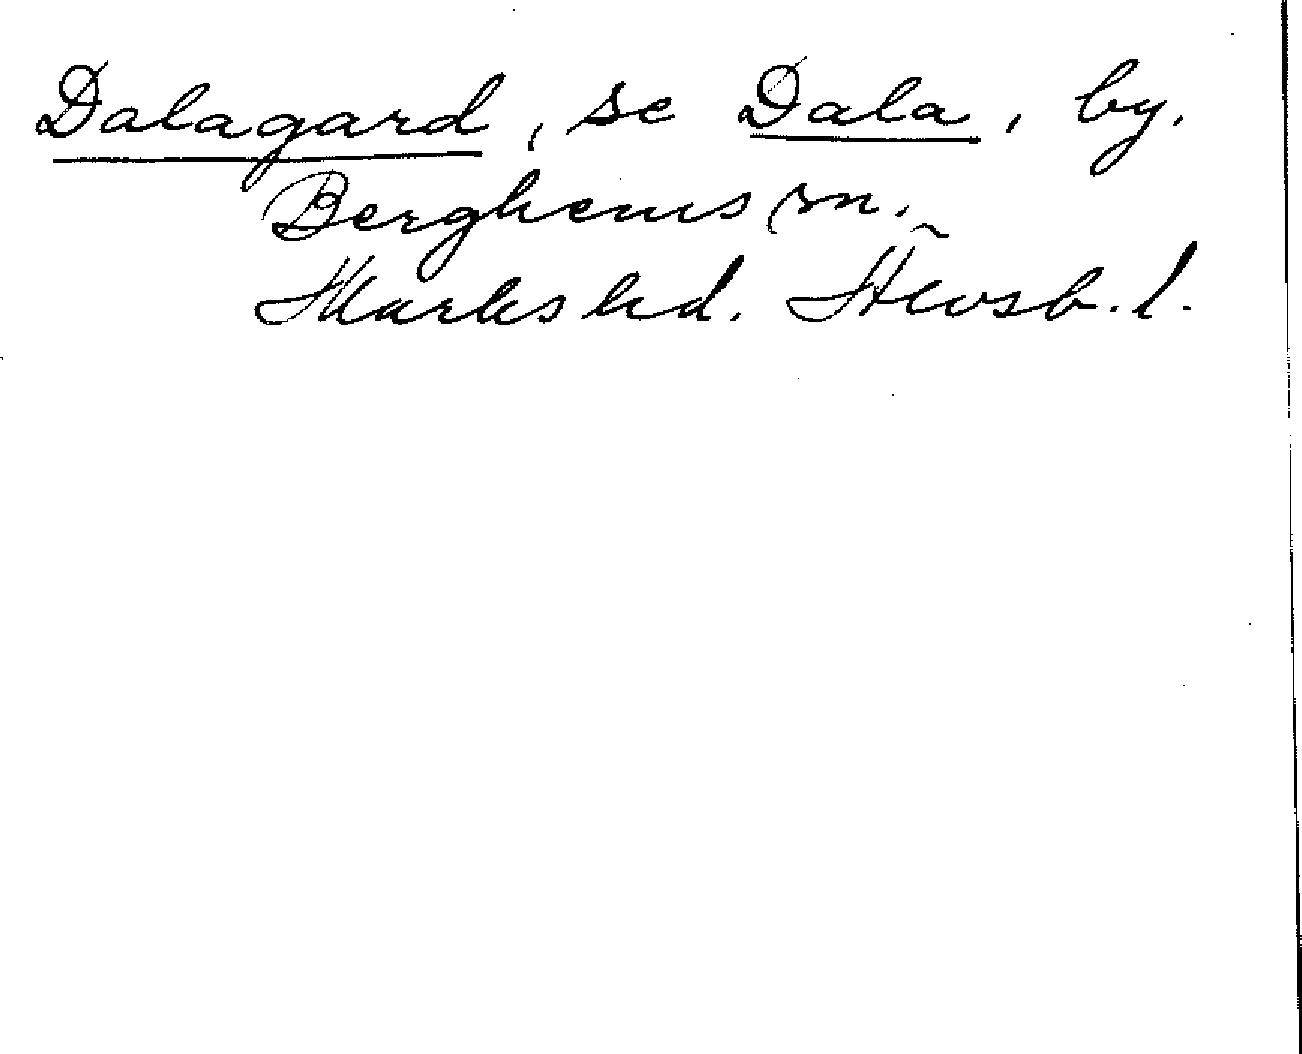 Dalagard, se Dala, by.
Berghems sn.
Marks hd. Älvsb. l.